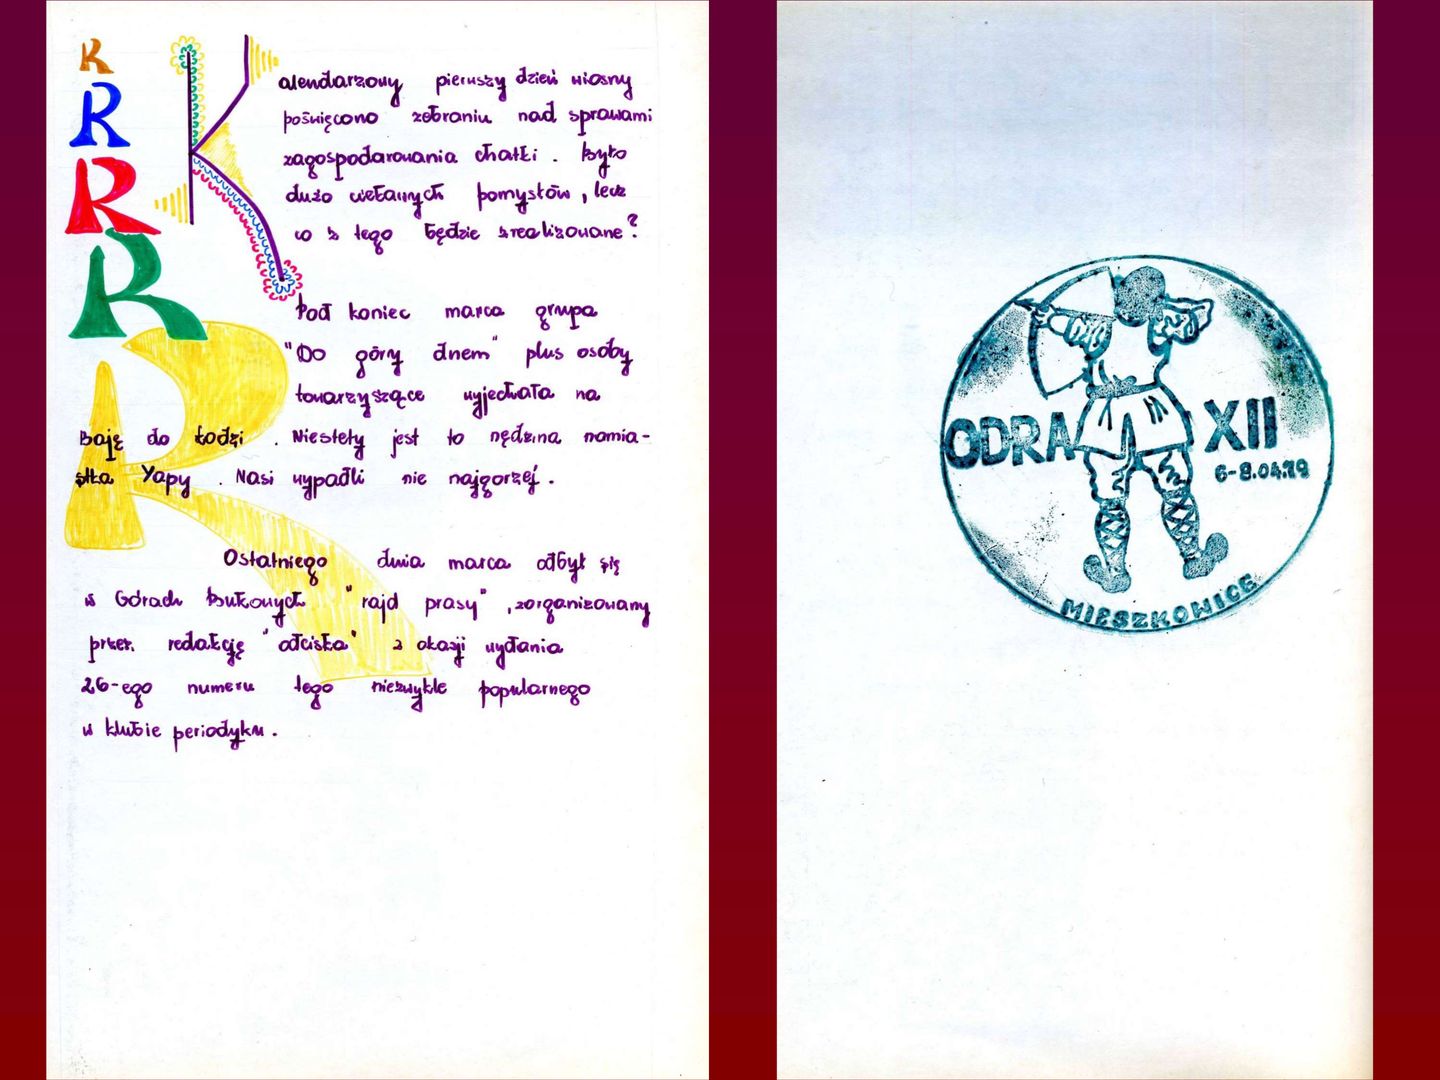 K
K
K
K
K
Kalendarzowy pierwszy dzień wiosny
poświęcono zebraniu nad sprawami
zagospodarowania chatki. Było
dużo ciekawych pomysłów, lecz
co z tego będzie zrealizowane?
Pod koniec marca grupa
"Do góry dnem" plus osoby
towarzyszące wyjechała na
Bazę do Łodzi. Niestety jest to nędzna namia-
stka Yapy. Nasi wypadli nie najgorzej.
Ostatniego dnia marca odbył się
w Górach Bukowych "rajd prasy", zorganizowany
przez redakcję "odciska" z okazji wydania
26-ego numeru tego niezwykle popularnego
w klubie periodyku.
ODRA XII
6-8.04.79
MIESZKOWICE